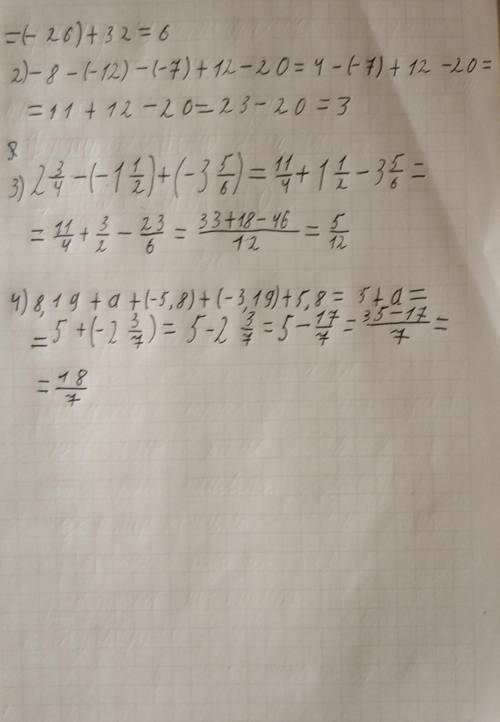 =(-26)+32=6
2)-8-(-12)-(-7)+12-20=4-(-7)+12-20=
=11+12-20=23-20=3
8
3) 2 3/4 -(-1 1/2)+(-3 5/6)= 11/4 +1 1/2 -3 5/6 =
= 11/4 + 3/2 - 23/6 = 33+18-46/12 = 5/12
4) 8,19+a+(-5,8)+(-3,19)+5,8= 5+a=
=5+(-2 3/7)= 5-2 3/7 =5- 17/7 = 35-17/7 =
= 18/7